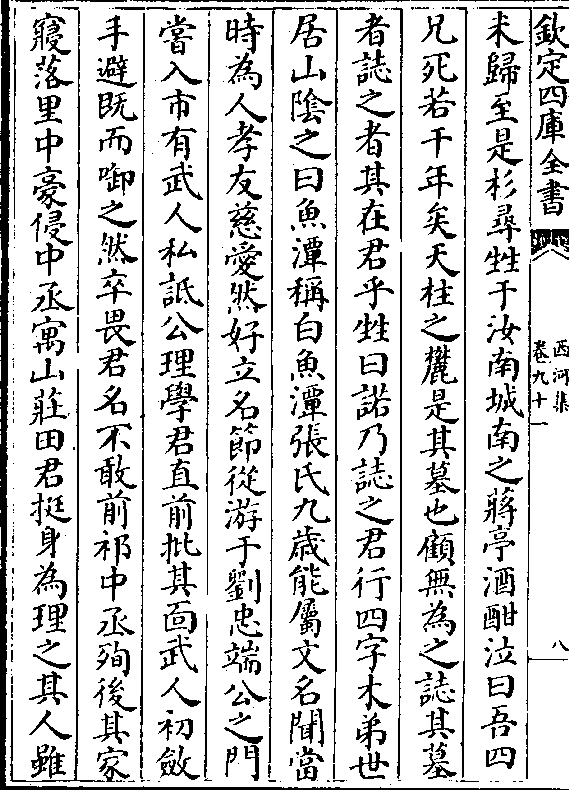 欽定四庫全書
西河集
卷九十一
八
未歸至是杉尋甡于汝南城南之蔣亭酒酣泣曰吾四
兄死若干年矣天柱之麓是其墓也顧無為之誌其墓
者誌之者其在君乎甡曰諾乃誌之君行四字木弟世
居山陰之曰魚潭稱白魚潭張氏九歲能屬文名聞當
時為人孝友慈愛然好立名節從游于劉忠端公之門
嘗入市有武人私詆公理學君直前批其面武人初斂
手避既而啣之然卒畏君名不敢前祁中丞殉後其家
寢落里中豪侵中丞寓山莊田君挺身為理之其人雖